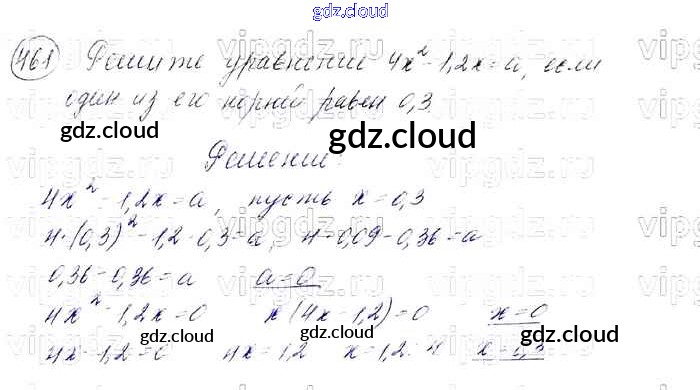 gdz.cloud
461 Решите уравнение 4x² - 1,2x = a, если
один из его корней равен 0,3.
gdz.cloud gdz.cloud
Решение:
4x² - 1,2x = a, пусть x = 0,3
4·(0,3)² - 1,2·0,3 = a, 4·0,09 - 0,36 = a
0,36 - 0,36 = a a = 0
4x² - 1,2x = 0 x(4x - 1,2) = 0 x = 0
gdz.cloud gdz.cloud gdz.cloud
4x - 1,2 = 0 4x = 1,2 x = 1,2 : 4 x = 0,3